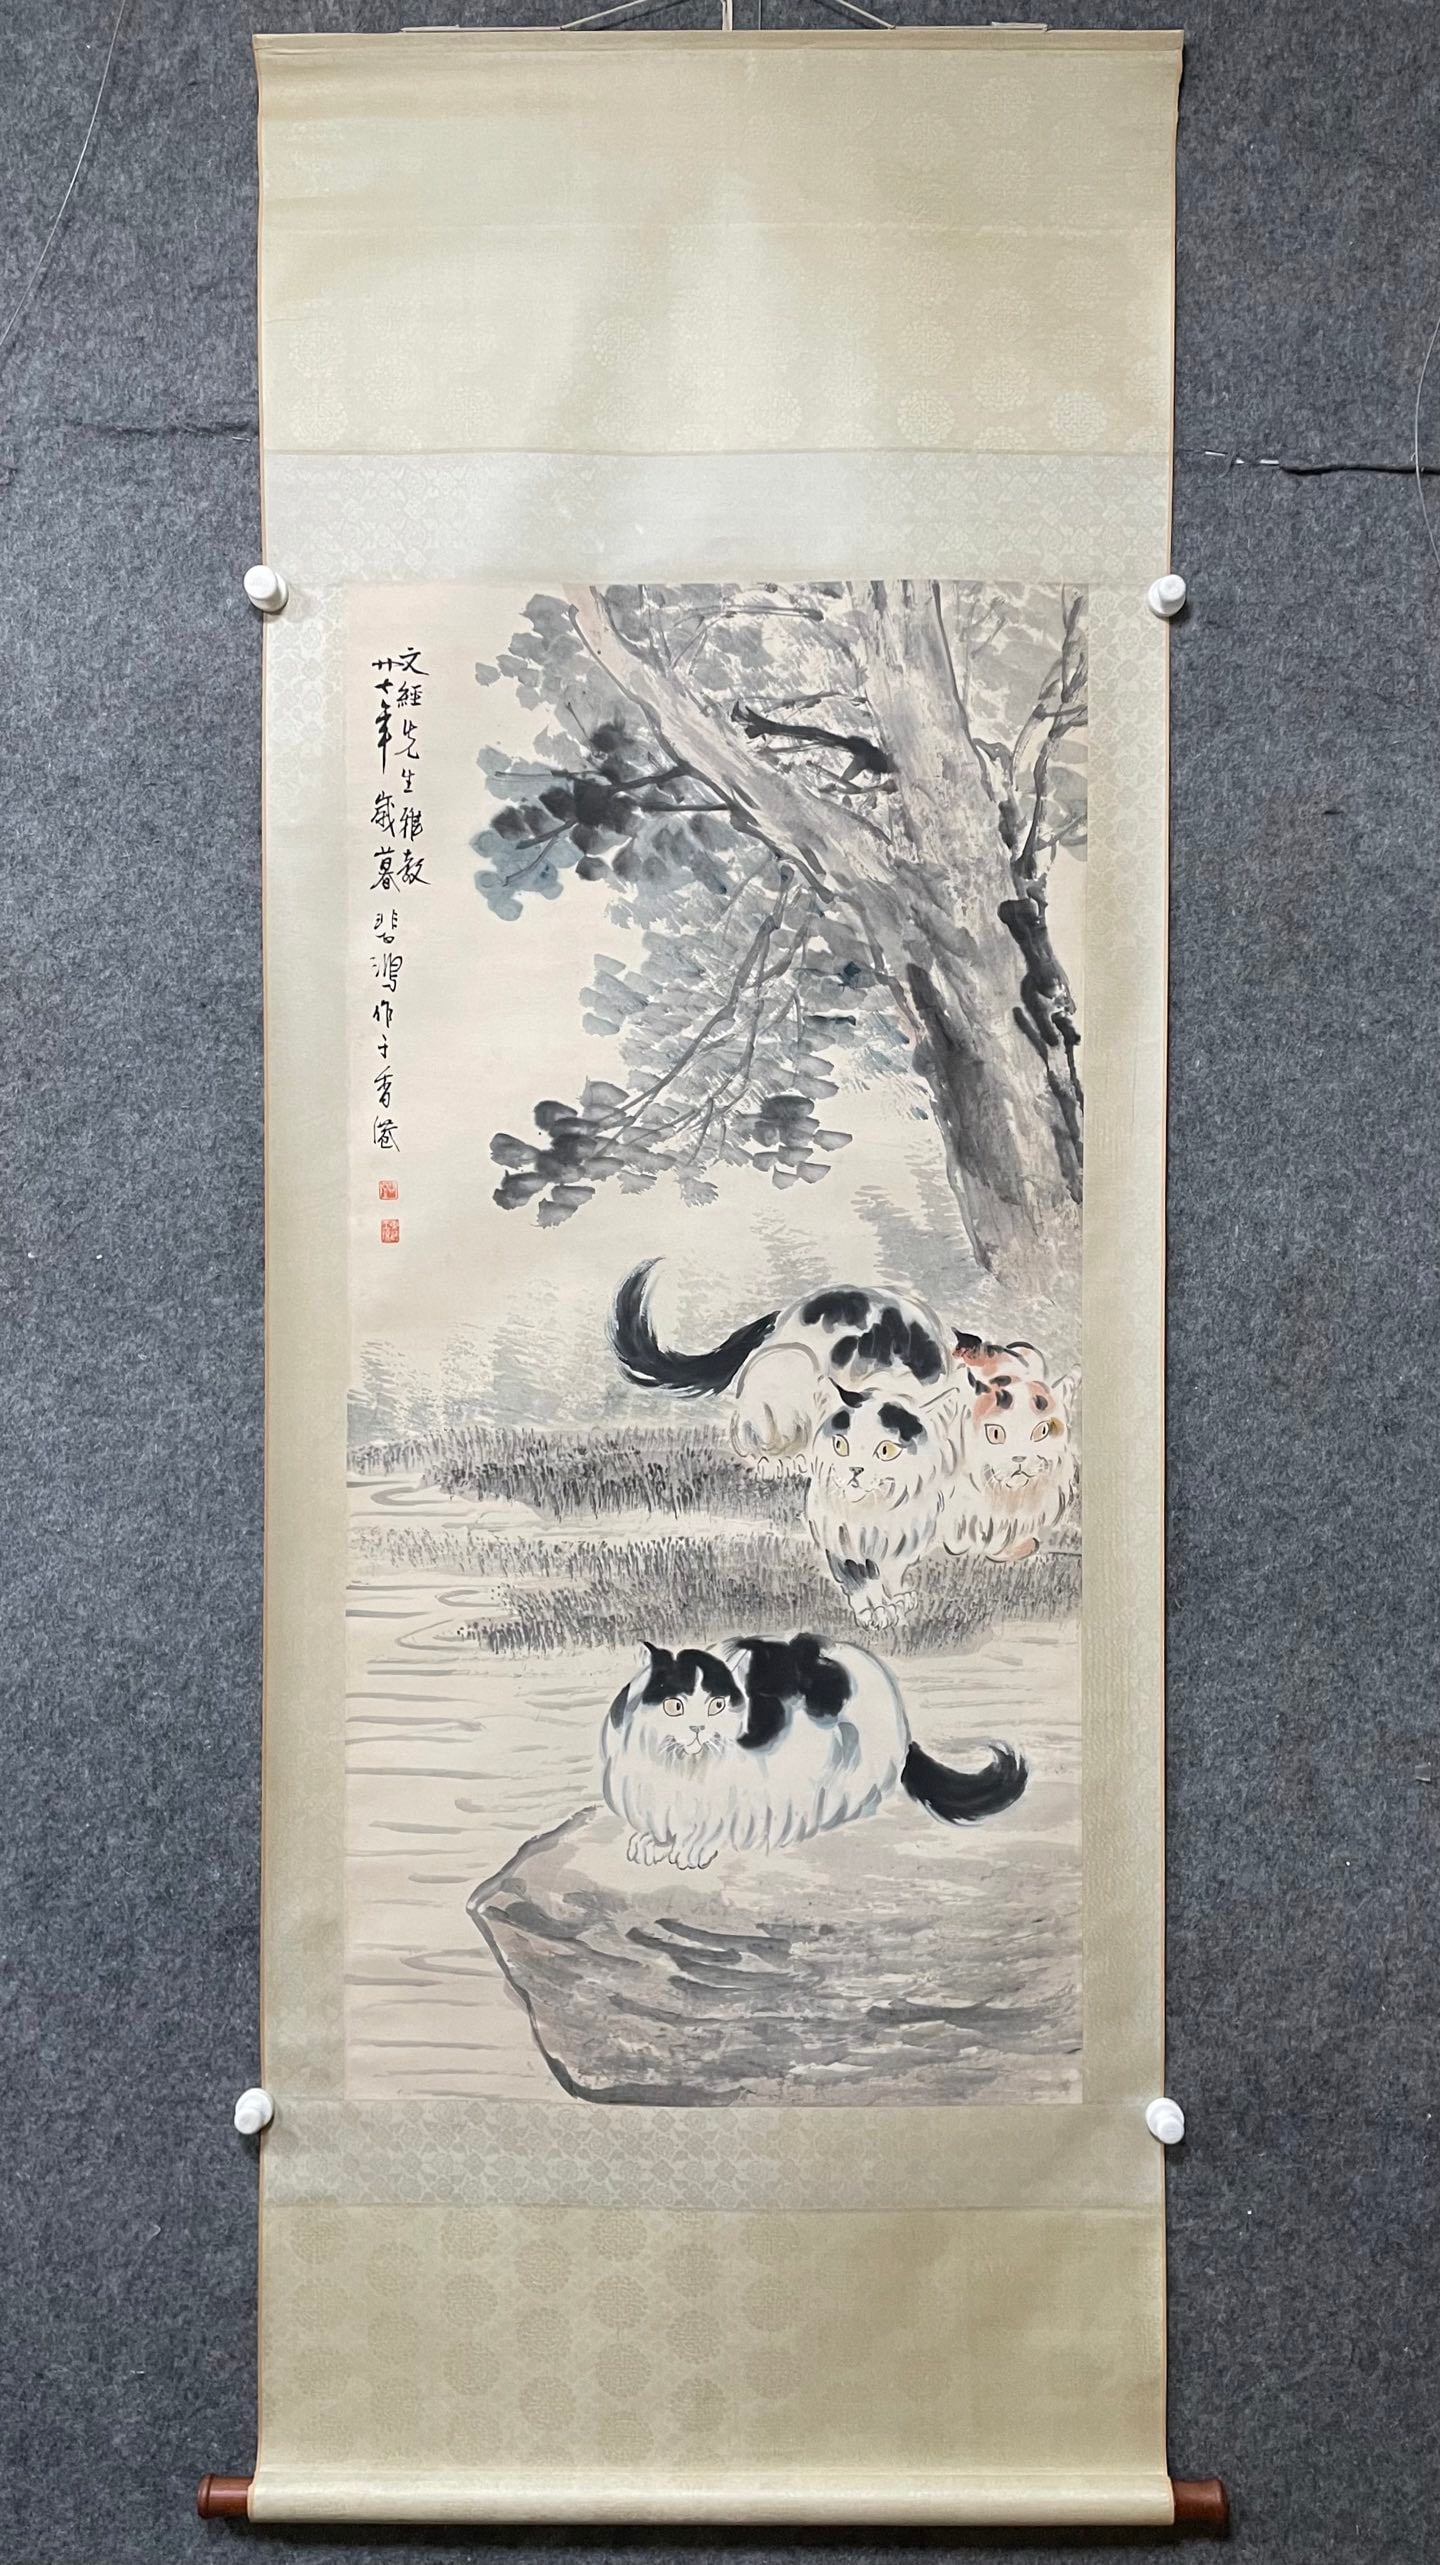 文經先生雅教
廿七年歲暮 悲鴻作于香港